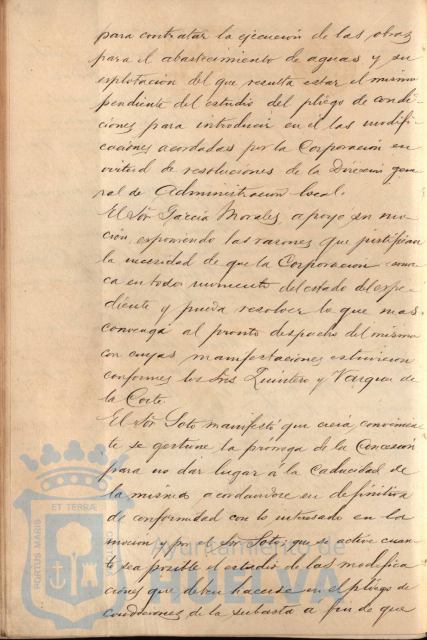 para contratar la ejecución de las obras
para el abastecimiento de aguas y su
esplotación del que resulta estar el mismo
pendiente del estudio del pliego de condi-
ciones para introducir en él las modifi-
caciones acordadas por la Corporación en
virtud de resoluciones de la Dirección gene
ral de Administración local.
El Sor García Morales apoyó su mo-
ción esponiendo las razones que justifican
la necesidad de que la Corporación conoz
ca en todo momento del estado del espe-
diente y pueda resolver lo que mas
convenga al pronto despacho del mismo
con cuyas manifestaciones estuvieron
conformes los Sres Quintero y Vazquez de
la Corte.
El Sor Soto manifestó que creia convenien
te se gestione la prórroga de la Concesión
para no dar lugar á la caducidad de
la misma acordandose en definitiva
de conformidad con lo interesado en la
mocion y por el Sor Soto, que se active cuan
to sea posible el estudio de las modifica
ciones que deben hacerse en el pliego de
condiciones de la subasta a fin de que
PORTUS MARIS
ET TERRÆ
Ayuntamiento de
HUELVA